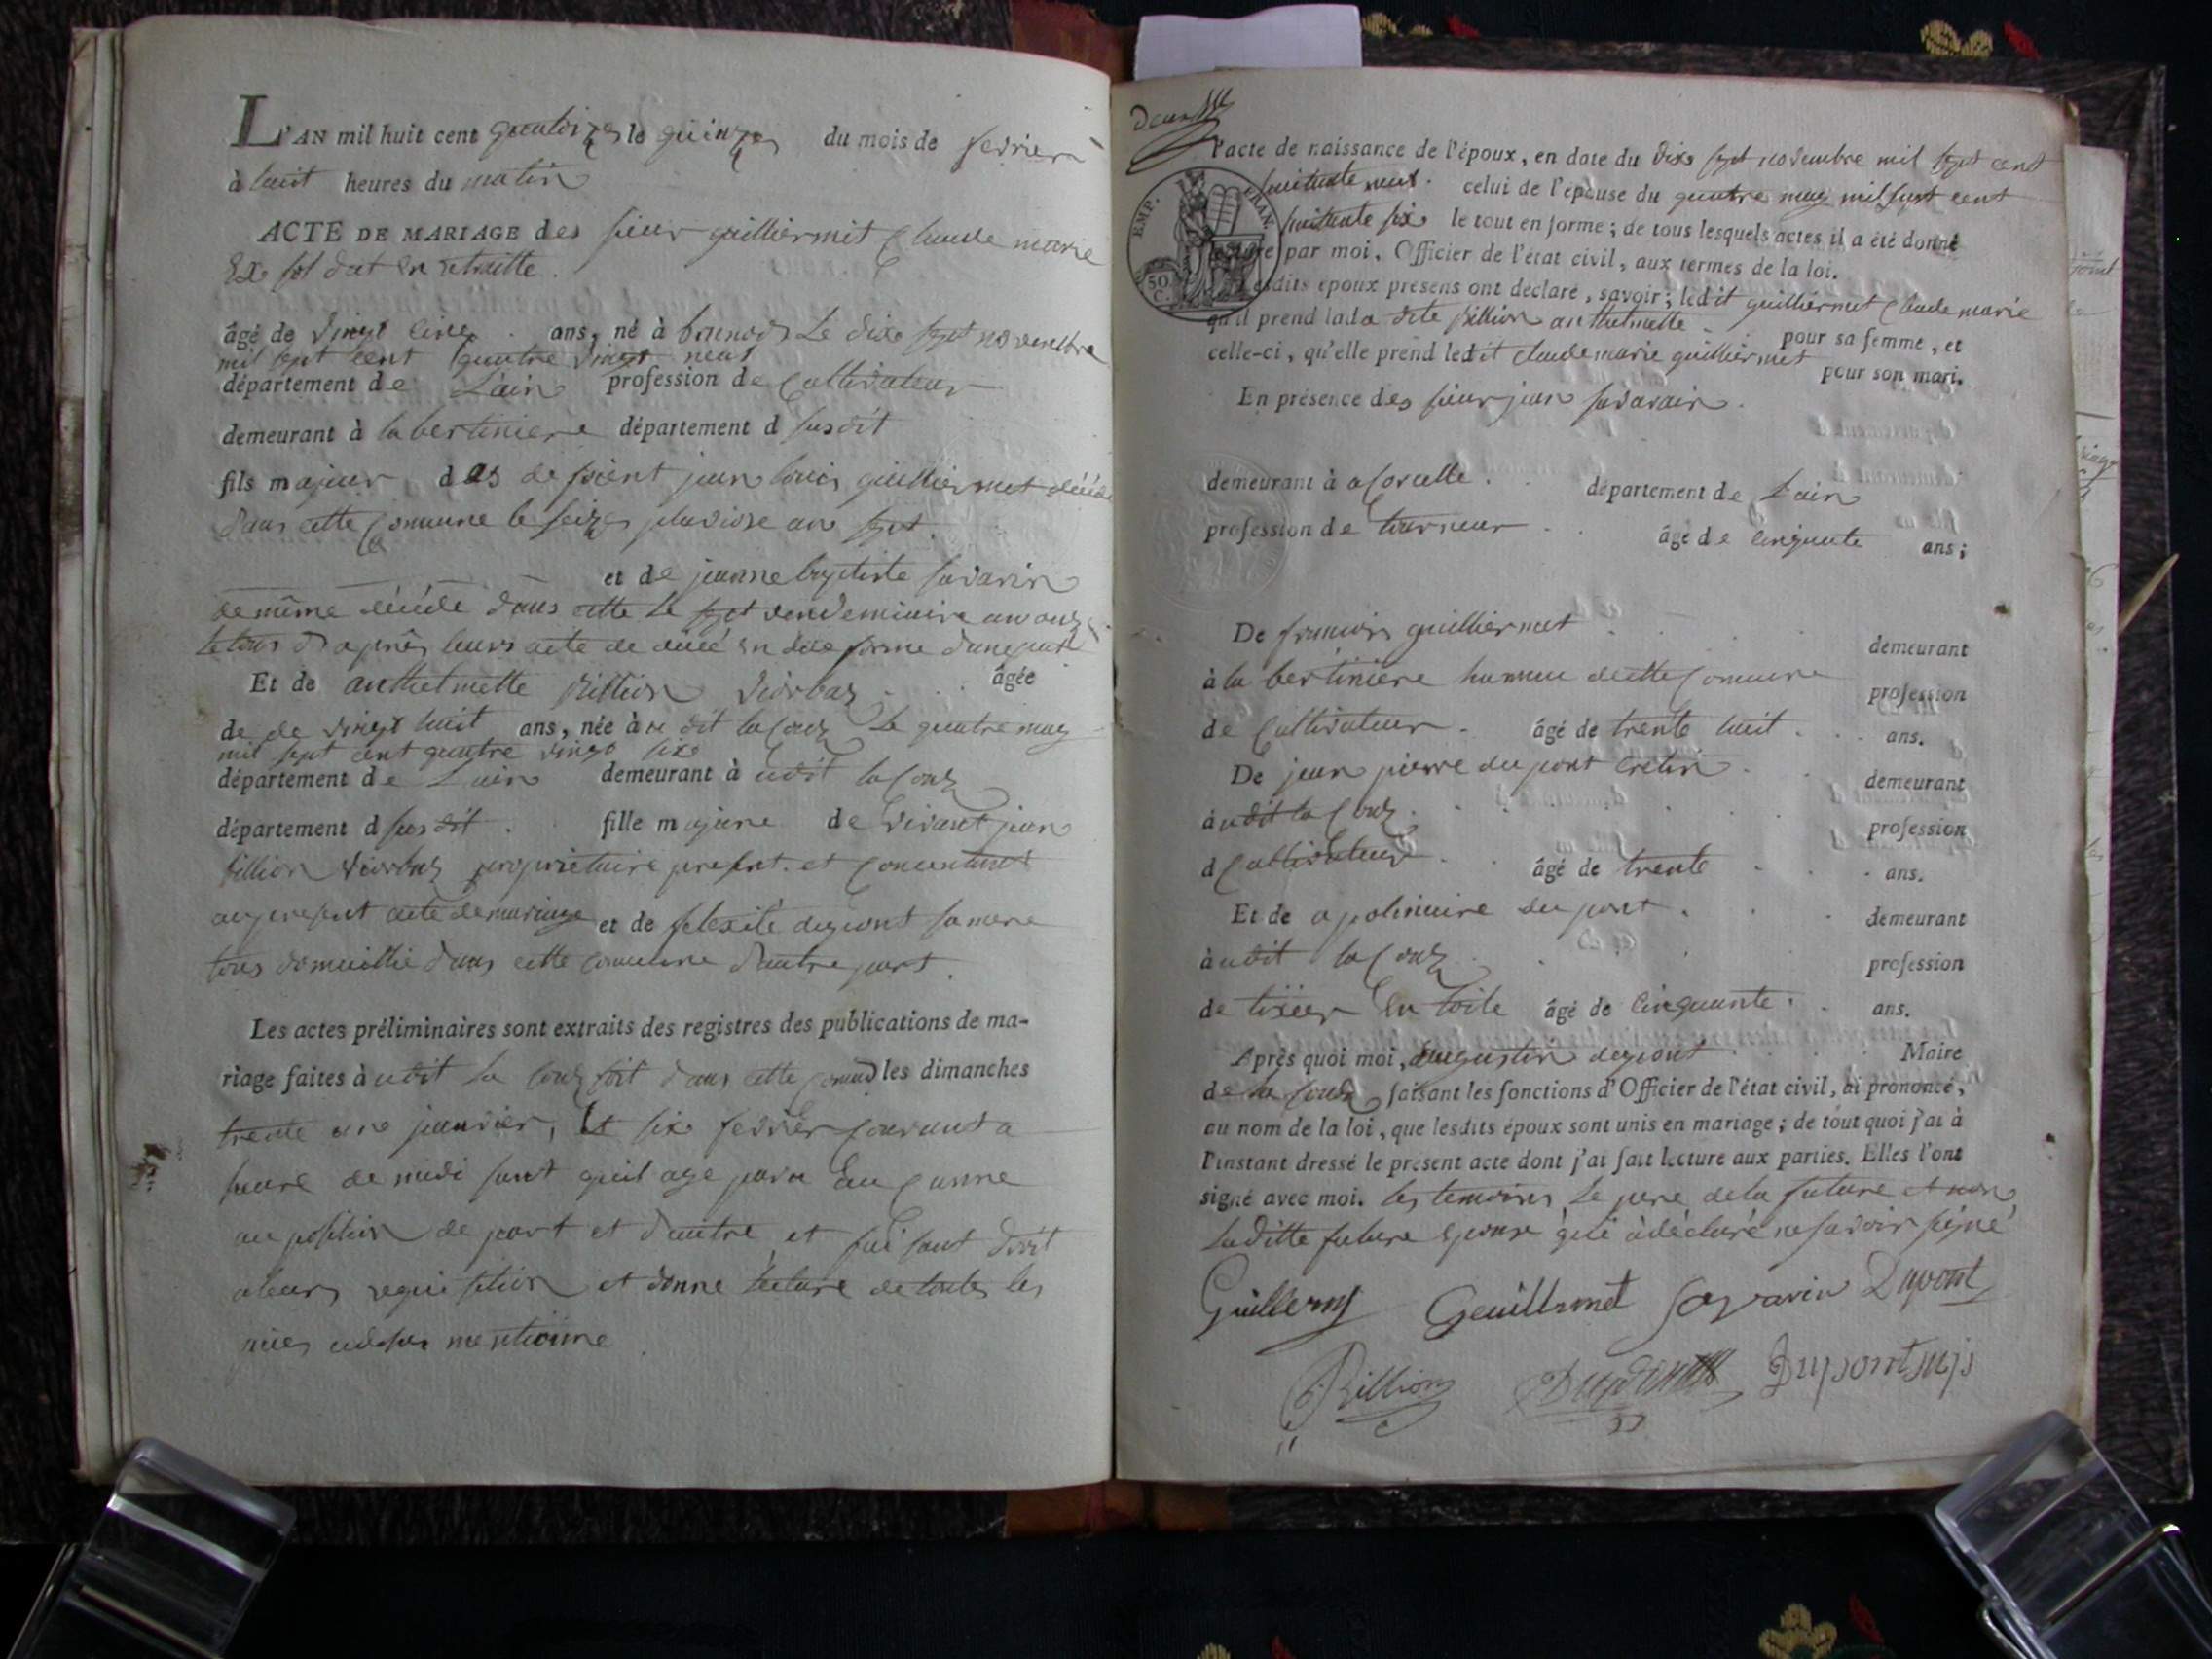 L'AN mil huit cent quatorze le quinze du mois de fevrier
à huit heures du matin
ACTE DE MARIAGE des sieur guilliermet Claude marie
Ex soldat en retraitte.
âgé de vingt cinq ans, né à le dixe sept novembre
mil sept cent quatre vingt neuf
département de L'ain profession de Cultivateur
demeurant à la bertiniere département d susdit
fils majeur des de jean louis guilliermet décédé
dans cette Comune le seize pluviose an sept.
et de jeanne baptiste savarin
de même décédé dans cette le sept vendemiaire an onze
le tous d'après leurs acte de décé en due forme dune part
Et de anthelmette Billion âgée
de de vingt huit ans, née à dit la Coux Le quatre may
mil sept cent quatre vingt sixe
département de Lain demeurant à udit la Coux
département d susdit. fille majeure de vivant jean
billion propriétaire present. et Consentant
au present acte de mariage et de felexité dupont sa mere
tous domicillié dans cette comune dautre part.
Les actes préliminaires sont extraits des registres des publications de ma-
riage faites à udit la Coux soit dans cette les dimanches
trente une janvier, Et sixe fevrier Courant a
heure de midi sant quil aye paru Eu Cunne
au position de part et dautre, et faisant droit
aleurs requisition et donne lecture de toutes les
pieces cidesus mentionne
deux
l'acte de naissance de l'époux, en date du dixe sept novembre mil sept cent
huitante neuf. celui de l'épouse du quatre may mil sept cent
huitante sixe le tout en forme; de tous lesquels actes il a été donné
lecture par moi, Officier de l'état civil, aux termes de la loi.
EMP. FRAN.
50 C.
Lesdits époux présens ont déclaré, savoir; ledit guilliermet Claude marie
qu'il prend lada dite Billion anthelmette pour sa femme, et
celle-ci, qu'elle prend ledit claude marie guilliermet pour son mari.
En présence des sieur jean savarain.
demeurant à a Corcelle. département de Lain
profession de tourneur. âgé de cinquente ans;
De francois guilliermet demeurant
à la bertiniere hameau de cette Comune profession
de Cultivateur. âgé de trente huit. ans.
De jean pierre du pont cretin. demeurant
à udit la Coux. profession
d Cultivateur. âgé de trente ans.
Et de apolinaire du pont. demeurant
à udit la Coux profession
de tixier En toile âgé de cinquante. ans.
Après quoi moi, augustin dupont Maire
de la Coux faisant les fonctions d'Officier de l'état civil, ai prononcé,
au nom de la loi, que lesdits époux sont unis en mariage; de tout quoi j'ai à
l'instant dressé le présent acte dont j'ai fait lecture aux parties. Elles l'ont
signé avec moi. les temoins, le pere de la future et non
laditte future Epouse qui à déclaré ne savoir signé
Guillerm Geuillermet Savarin Dupont
Billion Dupont Dupont